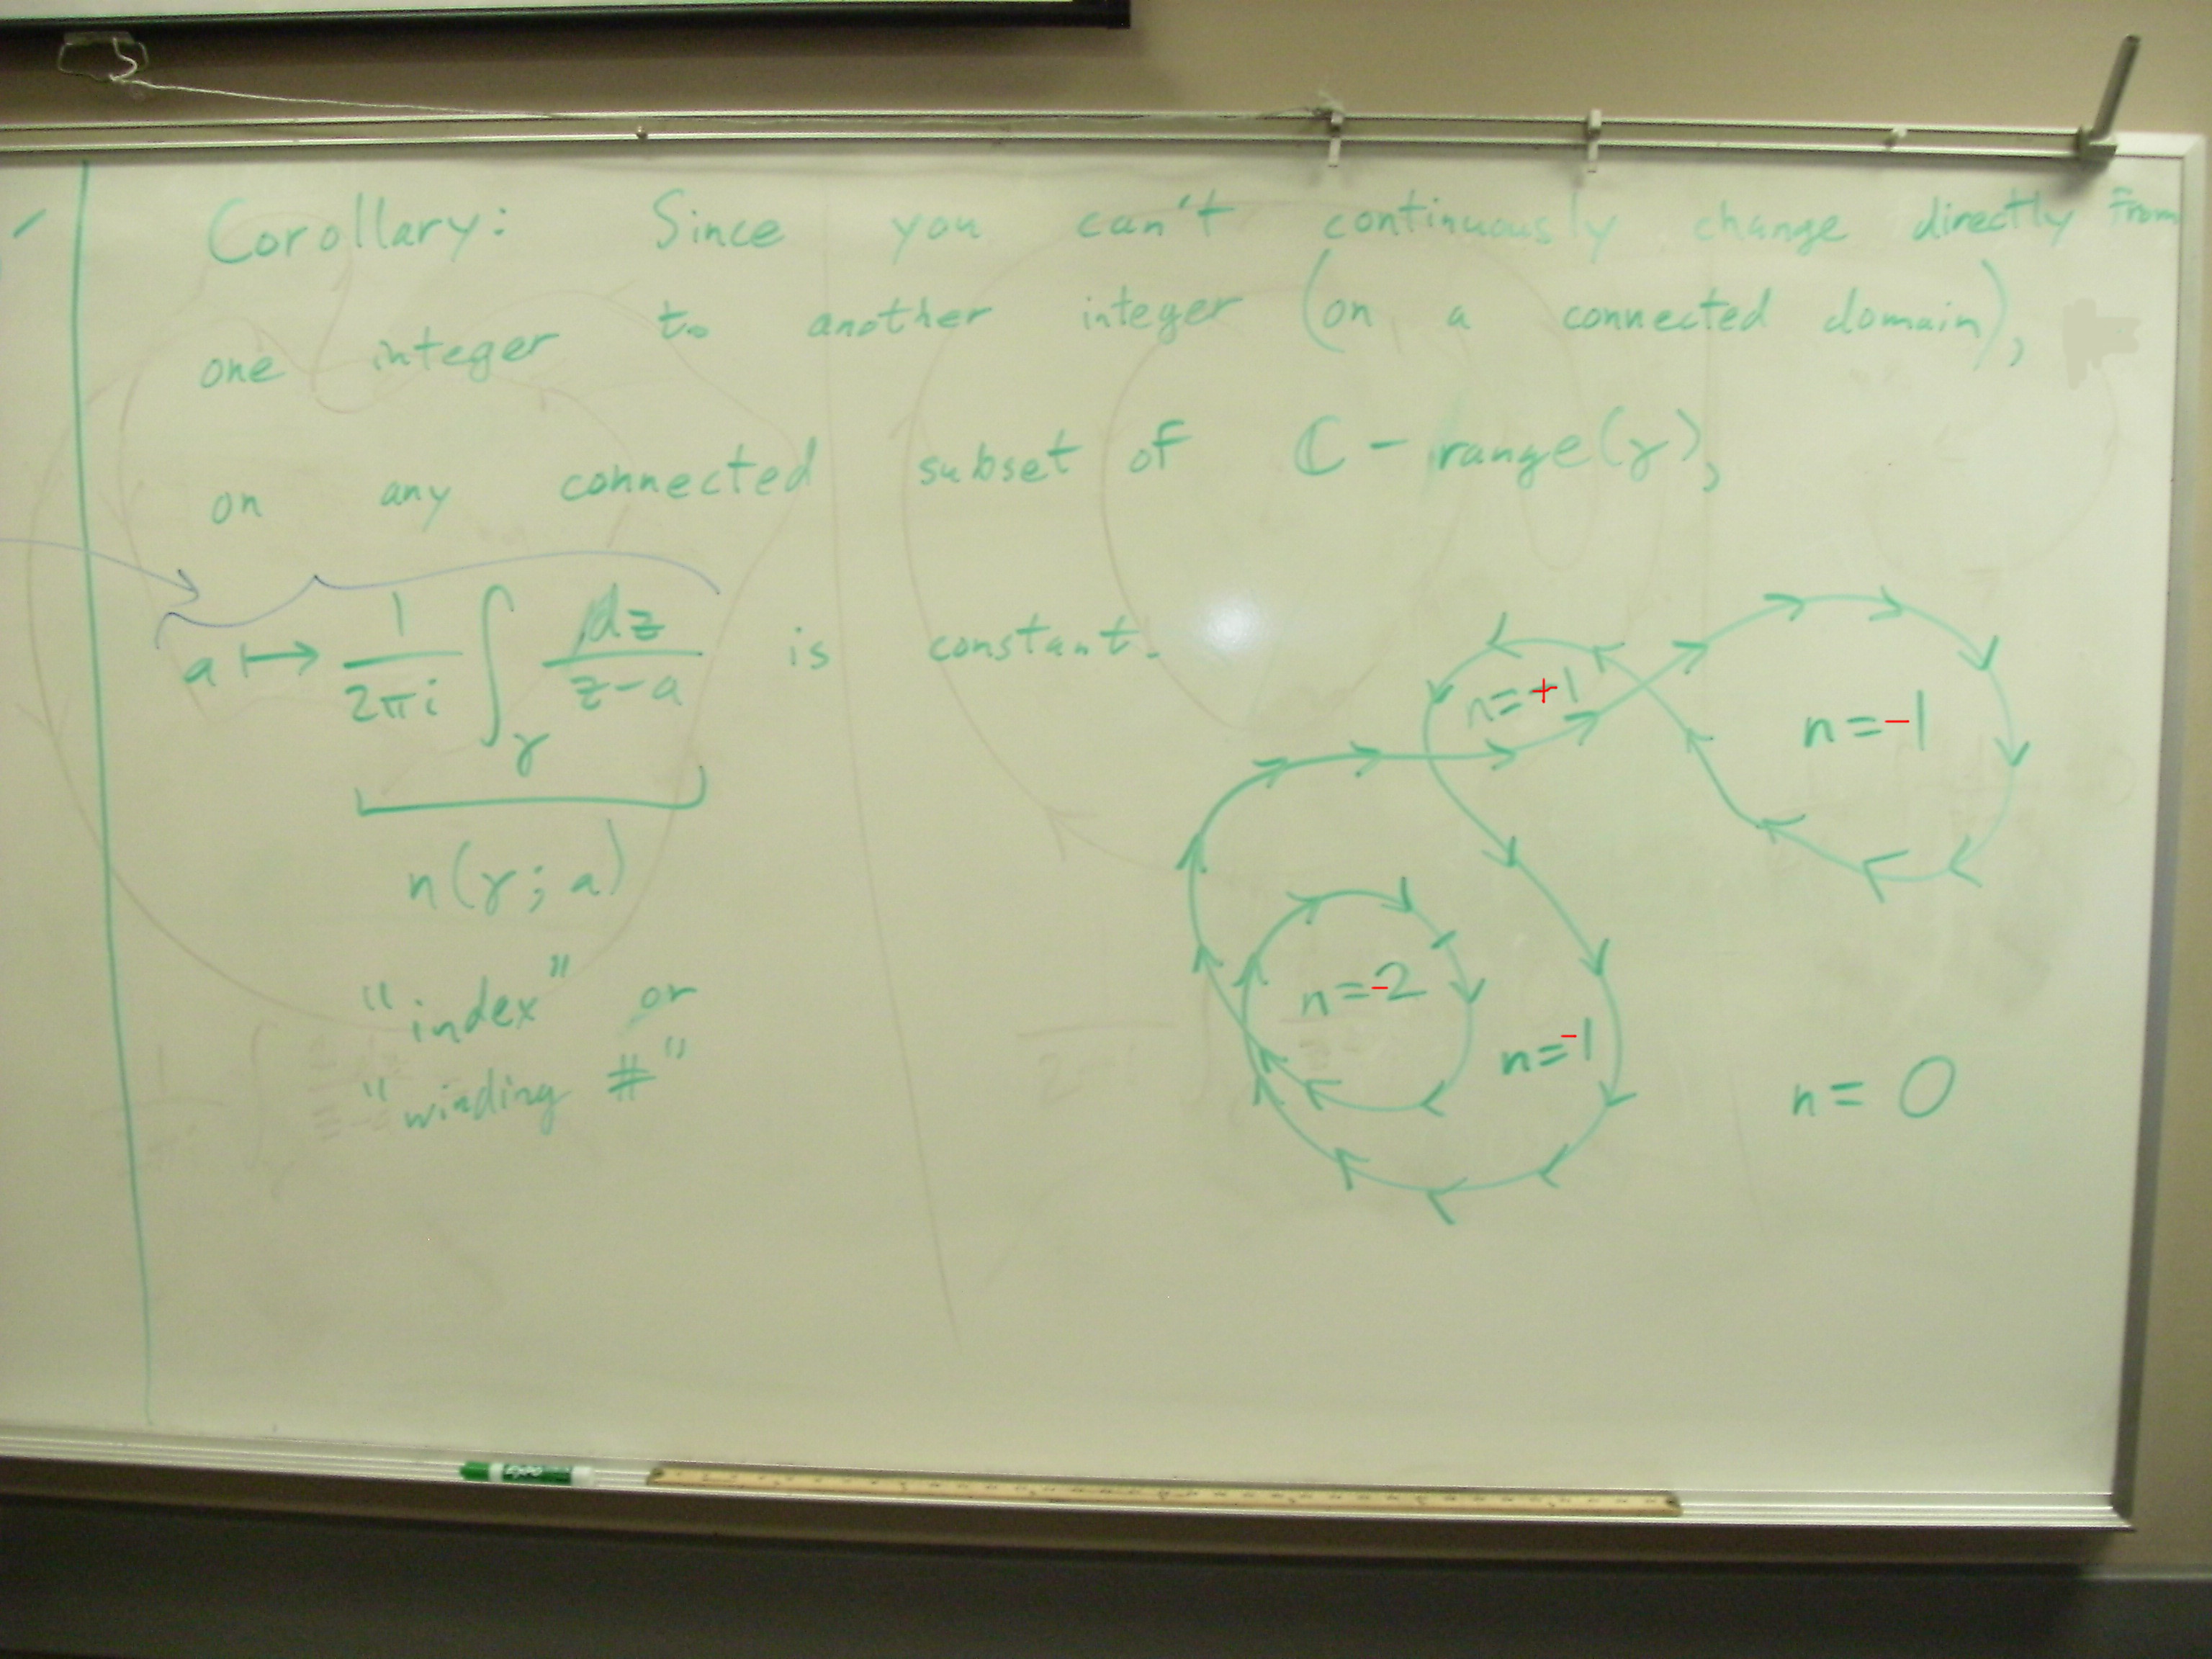 Corollary: Since you can't continuously change directly from
one integer to another integer (on a connected domain),
on any connected subset of ℂ - range(γ),
a ↦ 1/2πi ∫γ dz/z-a is constant.
n(γ; a)
"index" or
"winding #"
n=+1
n=-1
n=-2
n=-1
n=0
EXPO